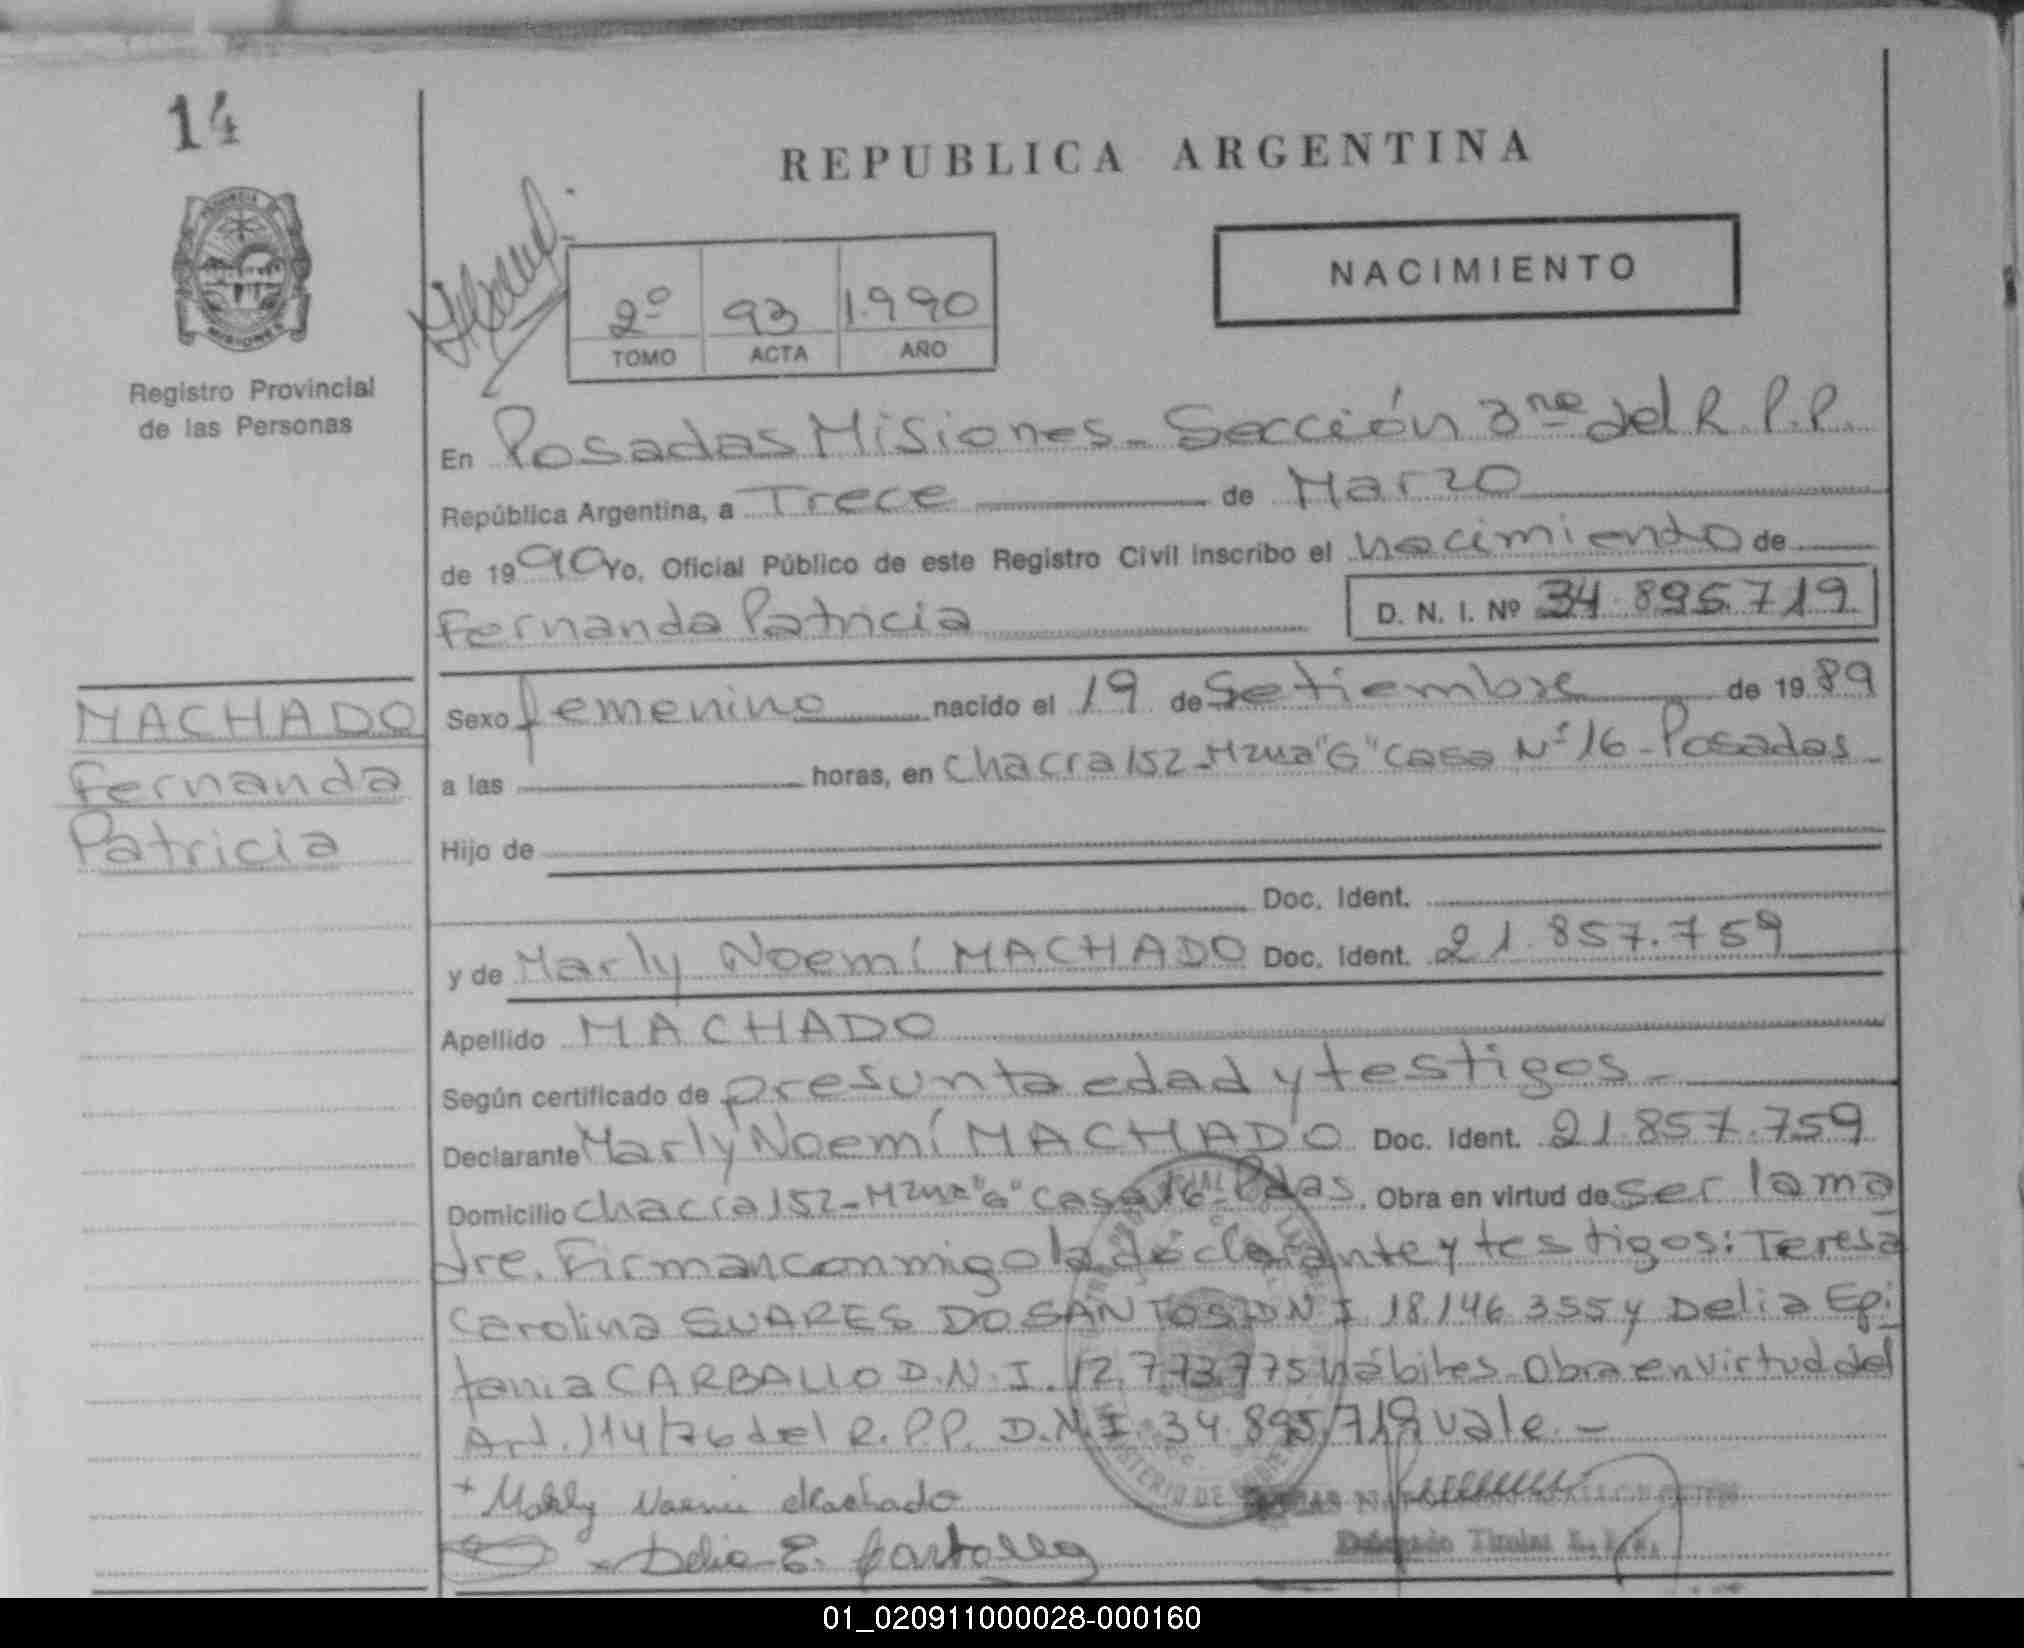 14
REPUBLICA ARGENTINA
NACIMIENTO
2º 93 1.990
TOMO ACTA AÑO
Registro Provincial
de las Personas
En Posadas Misiones - Sección 3ra del R.P.P.
República Argentina, a Trece de Marzo
de 1990 Yo, Oficial Público de este Registro Civil inscribo el nacimiento de
Fernanda Patricia D. N. I. Nº 34.895.719
MACHADO
Fernanda
Patricia
Sexo femenino nacido el 19 de Setiembre de 1989
a las horas, en Chacra 152 - Mzna "G" Casa Nº 16 - Posadas -
Hijo de
Doc. Ident.
y de Marly Noemí MACHADO Doc. Ident. 21.857.759
Apellido MACHADO
Según certificado de presunta edad y testigos -
Declarante Marly Noemí MACHADO Doc. Ident. 21.857.759
Domicilio Chacra 152 - Mzna "G" Casa 16 - Pdas. Obra en virtud de ser la ma
dre. Firman conmigo la declarante y testigos: Teresa
Carolina SUARES DO SANTOS D.N.I. 18.146.355 y Delia Epi
tania CARBALLO D.N.I. 12.773.775 hábiles. Obra en virtud del
Art. 114/76 del R.P.P. D.N.I. 34.895.719 vale. -
+ Marly Noemi Machado
Delia E.
Delegado Titular
01_020911000028-000160